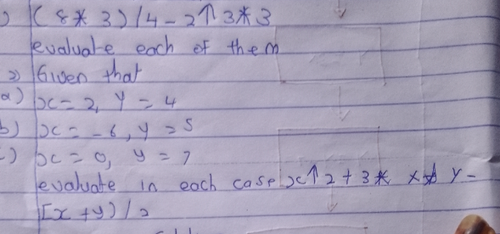 ) (8*3)/4-2↑3*3
evaluate each of them
2) Given that
a) x=2, y=4
b) x=-6, y=5
c) x=0, y=7
evaluate in each case x↑2+3* x* y-
[x+y)/2